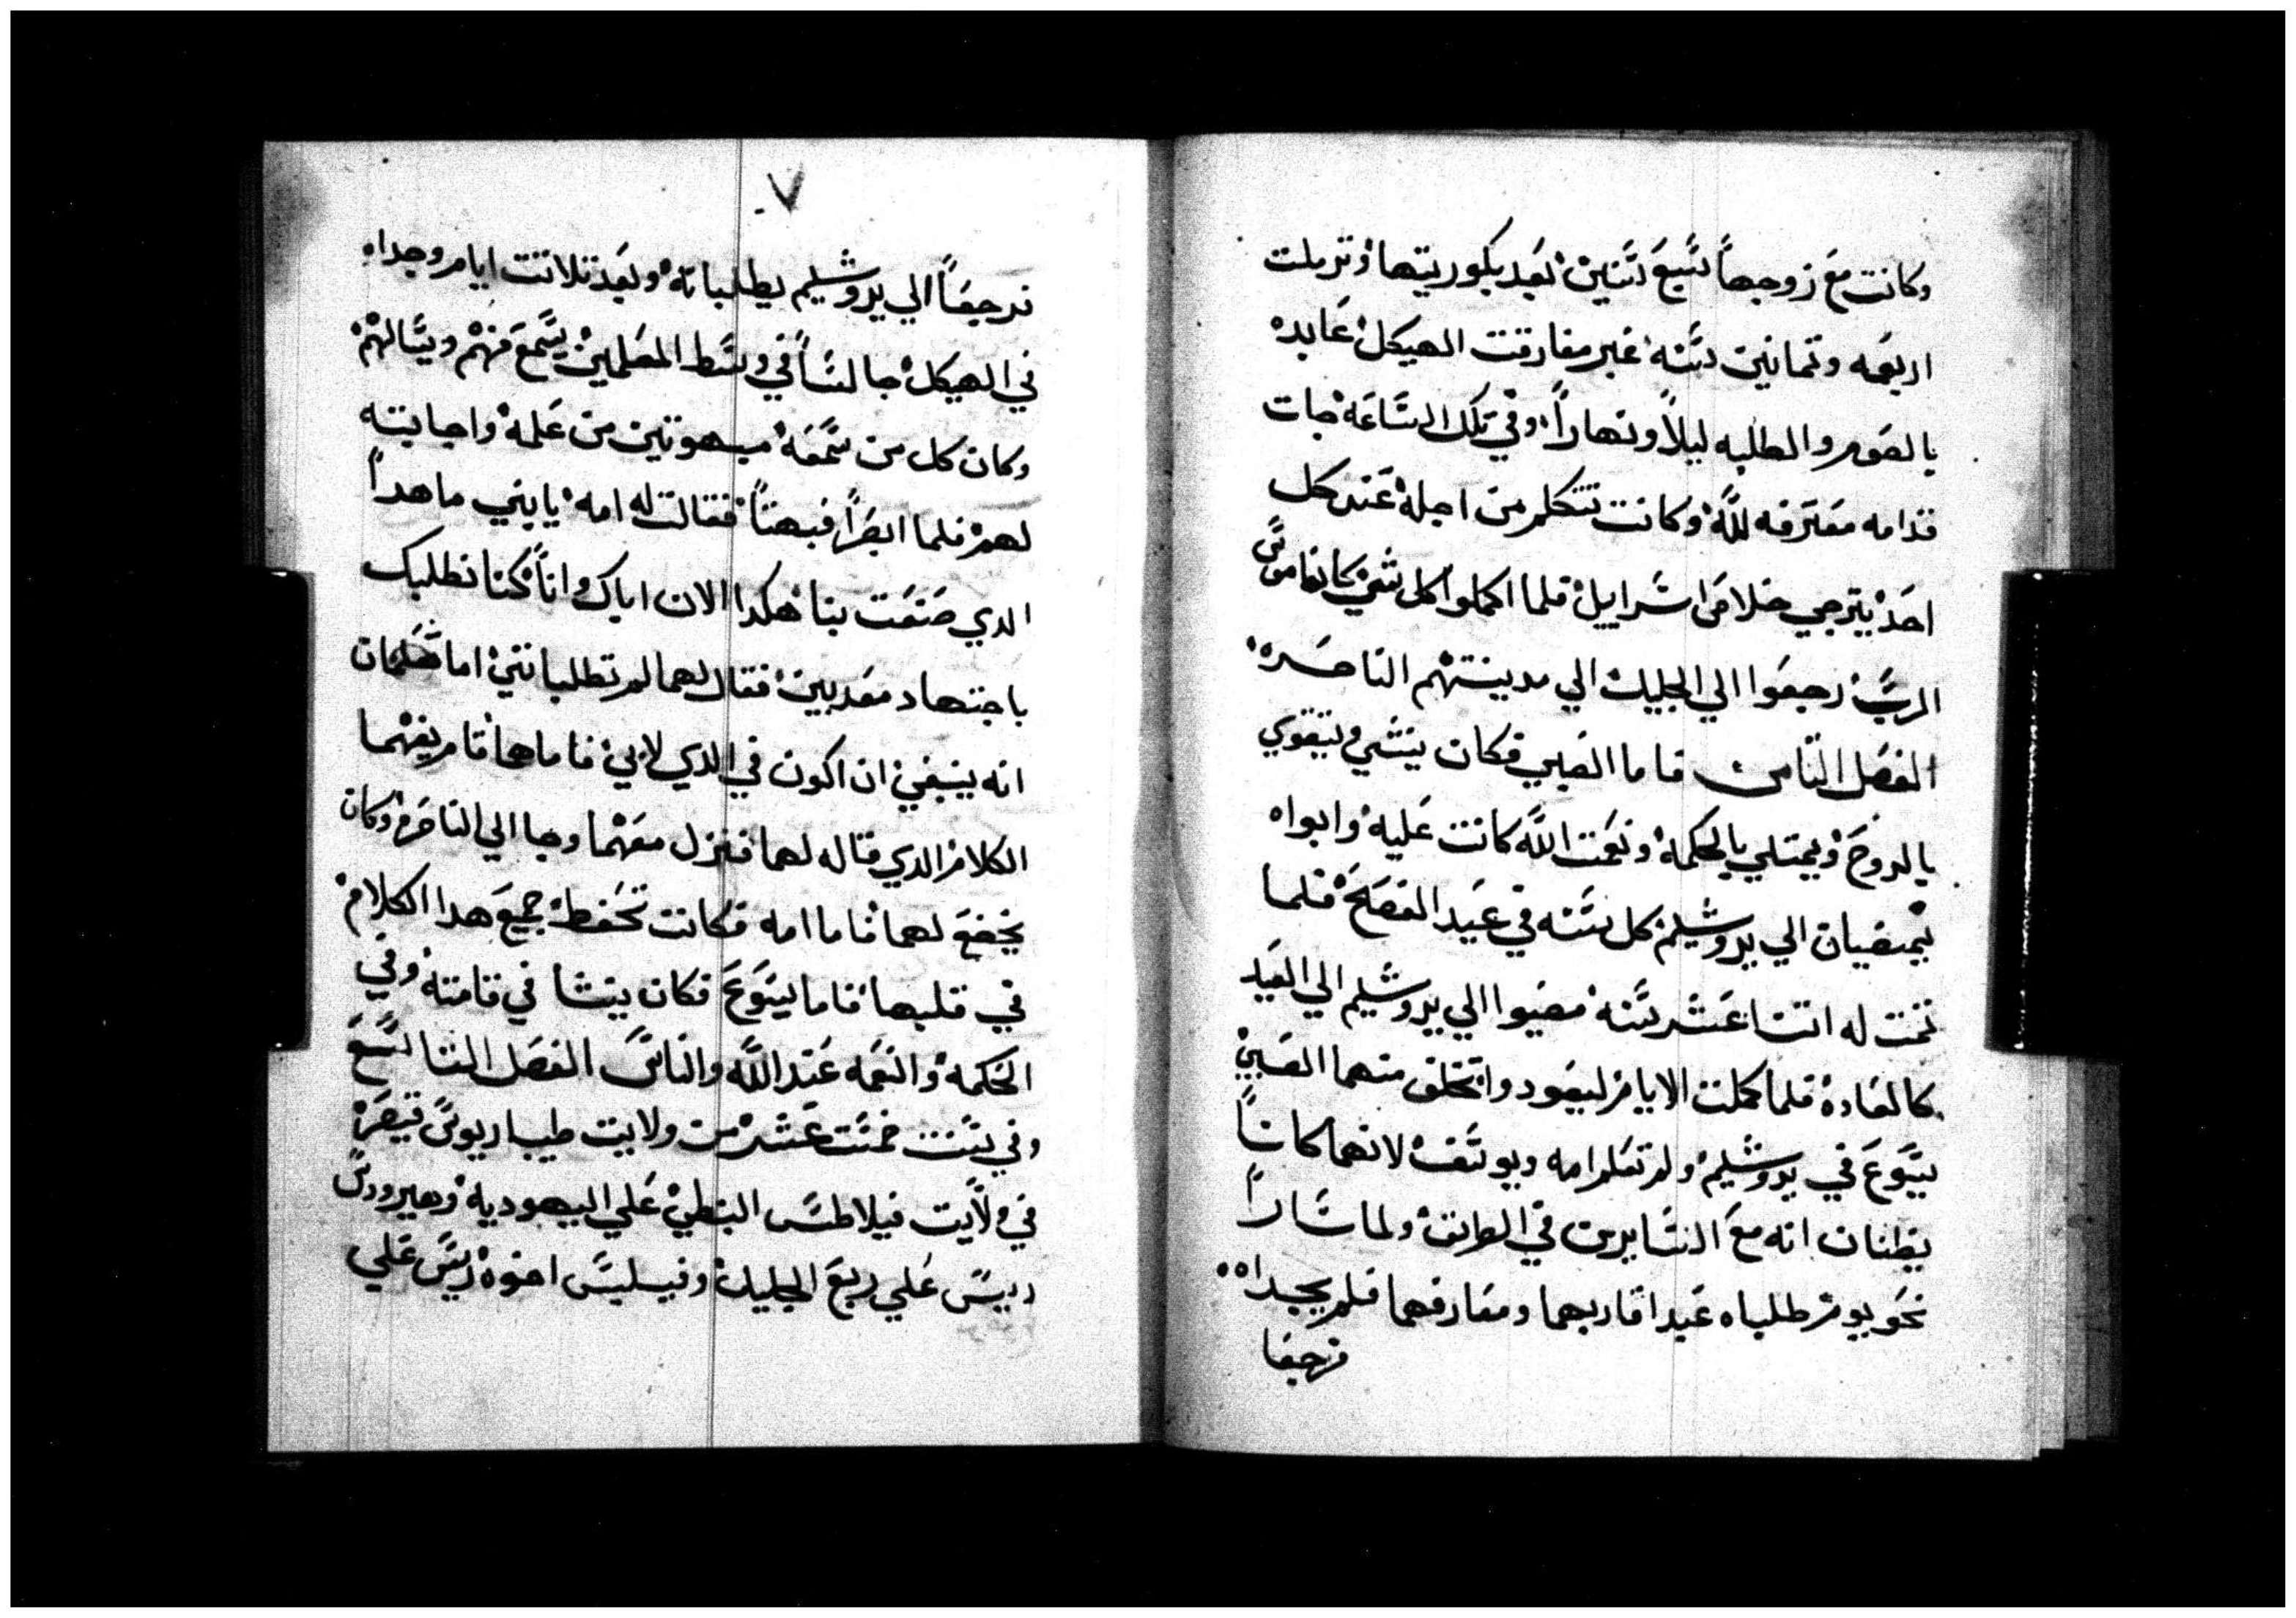 وكانت مع زوجها سبع سنين بعد بكوريتها وترملت
اربعه وتمانين سنه غير مفارقت الهيكل عابده
بالصوم والطلبه ليلاً ونهاراً وفي تلك الساعه جات
قدامه معترفه لله وكانت تتكلم من اجله عند كل
احد يترجي خلاص اسراييل فلما اكملوا كل شي كناموس
الرب رجعوا الي الجليل الي مدينتهم الناصره
الفصل التامن فاما الصبي فكان ينشي ويتقوي
بالروح ويمتلي بالحكمه ونعمت الله كانت عليه وابواه
يمضيان الي يروشليم كل سنه في عيد الفصح فلما
تمت له اتنتا عشر سنه مضيوا الي يروشليم الي العيد
كالعاده فلما كملت الايام ليعود واتخلف منهما الصبي
يسوع في يروشليم ولم تعلم امه ويوسف لانهما كاناً
يظنان انه مع السايرين في الطريق ولما ساراً
نحو يوم طلباه عند اقاربهما ومعارفهما فلم يجداه
فرجعا
٧
فرجعاً الي يروشليم يطلبانه وبعد تلاتت ايام وجداه
في الهيكل جالساً في وسط المعلمين يسمع منهم ويسالهم
وكان كل من سمعه مبهوتين من علمه واجابته
لهم فلما ابصراً فبهتاً فقالت له امه يابني ما هداً
الدي صنعت بنا هكدا الان اباك واناً كنا نطلبك
باجتهاد معدبين فقال لهما لم تطلبانني اما تعلمان
انه ينبغي ان اكون في الدي لابي فاما هما فلم يفهما
الكلام الدي قاله لهما فنزل معهما وجا الي الناصره وكان
يخضع لهما فاما امه فكانت تحفظ جميع هدا الكلام
في قلبها فاما يسوع فكان ينشا في قامته وفي
الحكمه والنعمه عند الله والناس الفصل التاسع
وفي سنت خمست عشر من ولايت طيباريوس قيصر
في ولايت فيلاطس البنطي علي اليهوديه وهيرودس
رييس علي ربع الجليل وفيلبس اخوه ريس علي